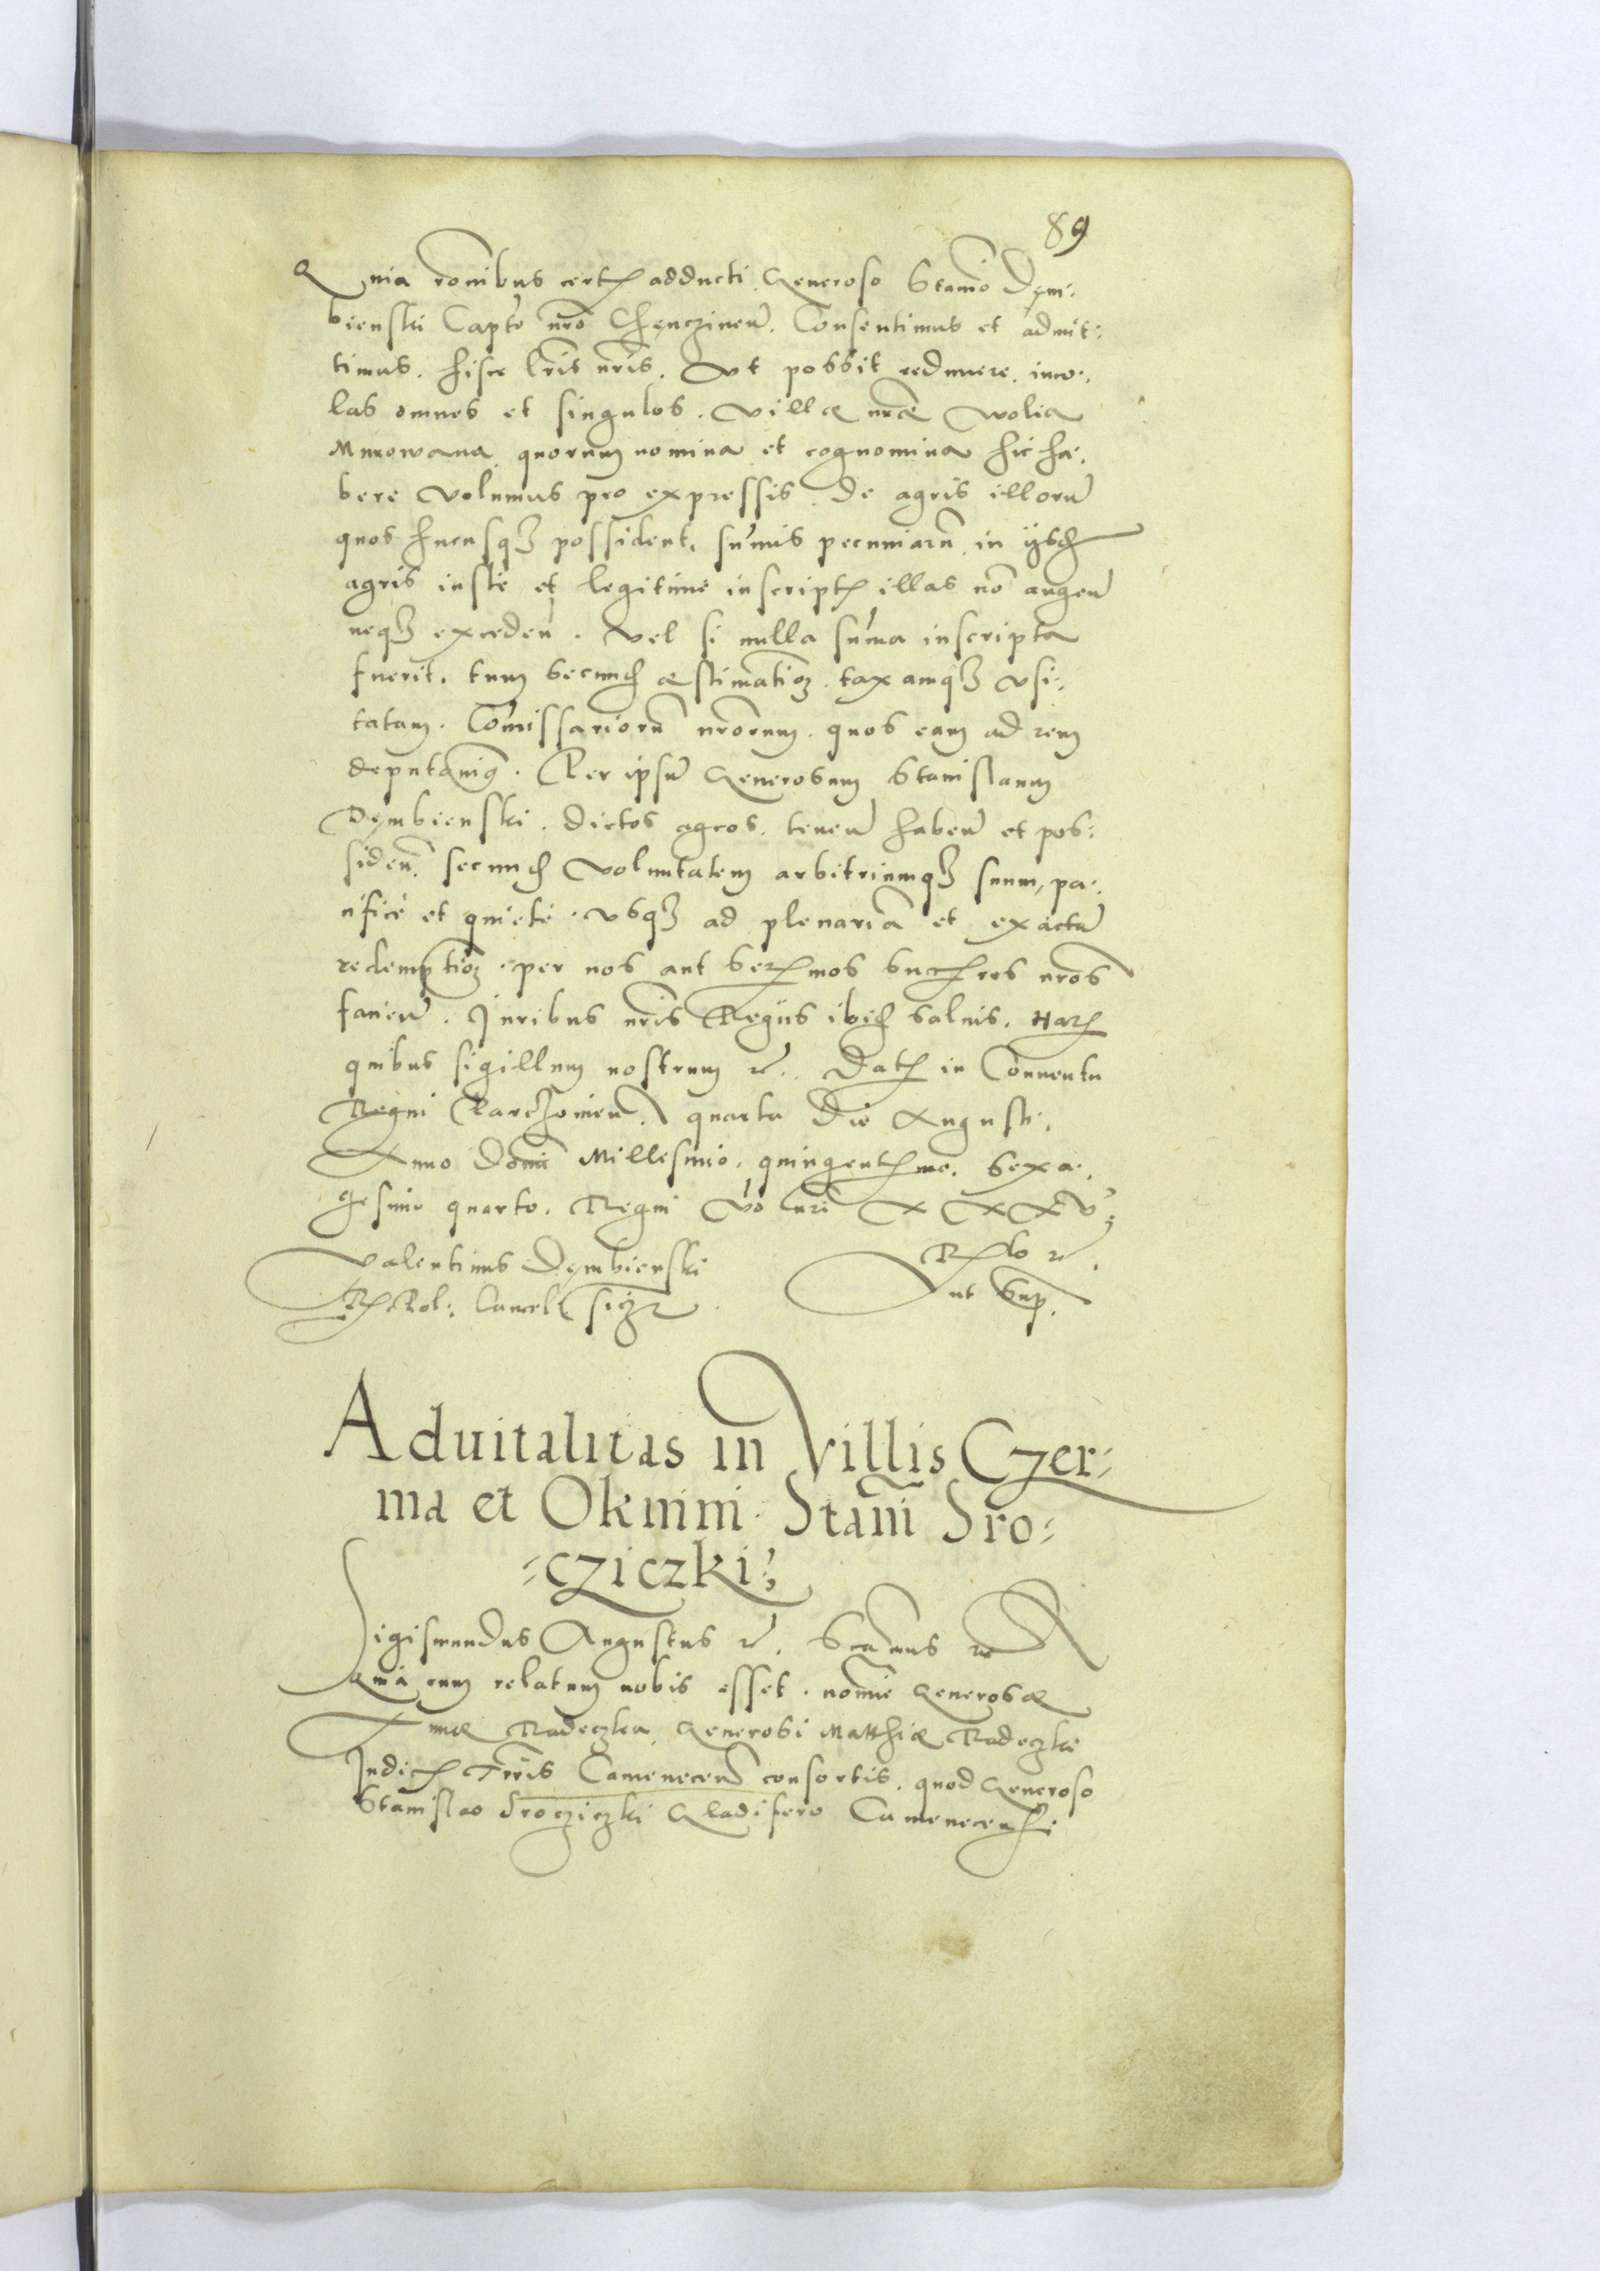 89
Quia rõnibus certis adducti Generoso Stanĩo Dęm:
bienski Capto nrõ Chęnczineñ. Consentimus et admit:
timus. hisce lrĩs nrĩs. Vt possit redimere. inco:
las omnes et singulos. villæ nræ Wolia
Murowana quorum nomina et cognomina hic ha:
bere volumus pro expressis. De agris illorũ
quos hucusq3 possident, sum̃is pecuniarũ in ijsd
agris iuste et legitime inscriptis illas nõ augeñ
neq3 excedeñ. Vel si nulla sum̃a inscripta
fuerit. tum secund æstimatioẽ taxamq3 vsi:
tatam. Com̃issariorũ nrõrum. quos eam ad rem
deputabimus. Per ipsũ Generosum Stanislaum
Dęmbienski. dictos agros. teneñ habeñ et pos:
sideñ. secund voluntatem arbitriumq3 suum, pa:
cifice et quiete. vsq3 ad plenariã et exactã
redemptioẽ per nos aut Serẽmos succẽsores nrõs
facieñ. Iuribus nrĩs Regijs ibid saluis. Harũ
quibus sigillum nostrum etc. Datum in Conuentu
Regni Parczouieñ. quarta die Augusti.
Anno Domĩ Millesimo. quingentesimo. sexa:
gesimo quarto. Regni vero nrĩ XXXV:
Valentinus Dęmbienski
R. Pol: Cancell. sstt
Rlo etc.
ut Sup.
Aduitalitas in Villis Czer:
ma et Oknini Stanĩ Sro:
:cziczki:
Sigismundus Augustus etc. Sĩcamus etc.
Quia cum relatum nobis esset. nomĩe Generosæ
Annæ Radeczka Generosi Matthiæ Radeczki
Iudicis Trrĩs Cameneceñ consortis. quod Generoso
Stanislao Srocziczki Gladifero Camenecensi